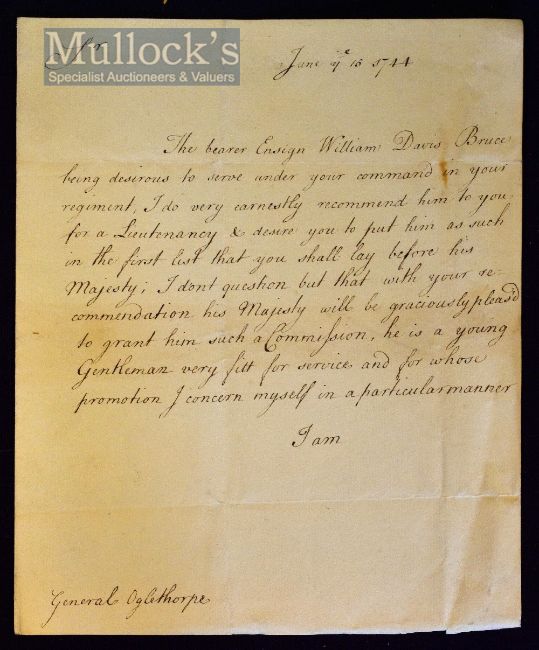 Mullock's
Specialist Auctioneers & Valuers
Sr
June ye 15 1744
The bearer Ensign William Davis Bruce
being desirous to serve under your command in your
regiment, I do very earnestly recommend him to you
for a Lieutenancy & desire you to put him as such
in the first list that you shall lay before his
Majesty; I dont question but that with your re-
commendation his Majesty will be graciously pleas'd
to grant him such a Commission, he is a young
Gentleman very fitt for service and for whose
promotion I concern myself in a particular manner
I am
General Oglethorpe